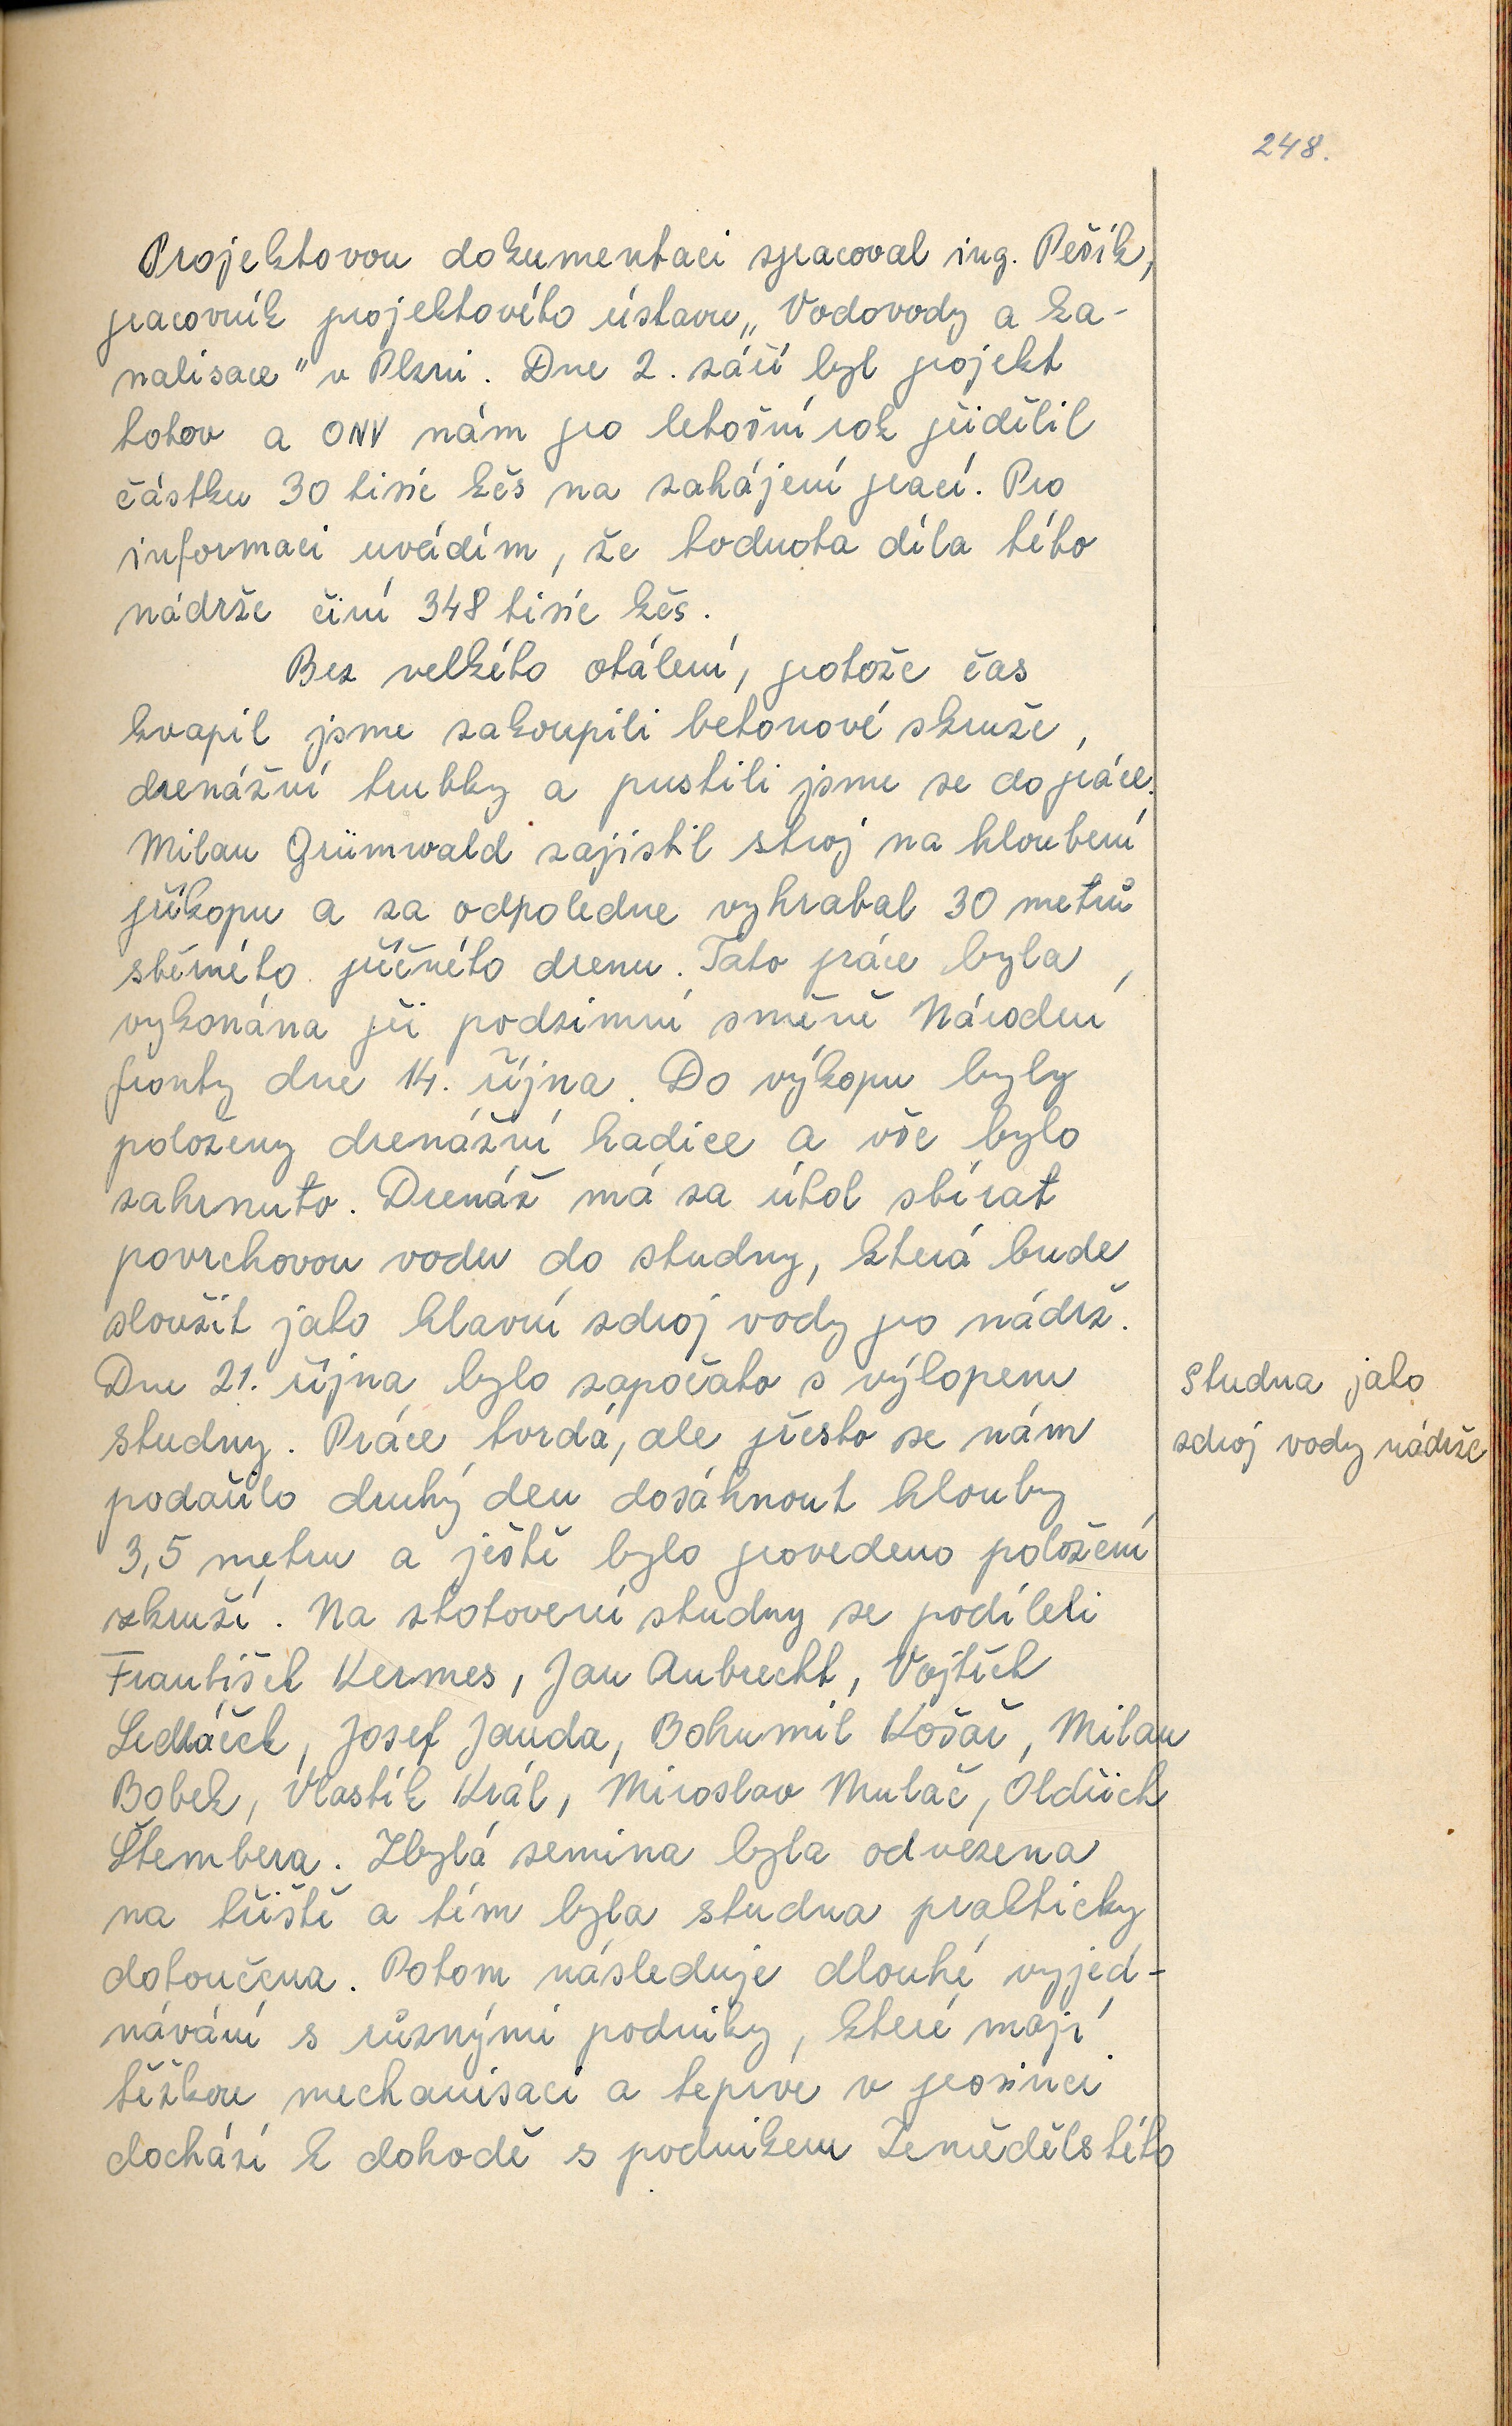 248.
Projektovou dokumentaci zpracoval ing. Pešík,
pracovník projektového ústavu „Vodovody a ka-
nalisace" v Plzni. Dne 2. září byl projekt
hotov a ONV nám pro letošní rok přidělil
částku 30 tisíc kčs na zahájení prací. Pro
informaci uvádím, že hodnota díla této
nádrže činí 348 tisíc kčs.
Bez velkého otálení, protože čas
kvapil jsme zakoupili betonové skruže,
drenážní trubky a pustili jsme se do práce.
Milan Grümwald zajistil stroj na hloubení
příkopu a za odpoledne vyhrabal 30 metrů
sběrného příčného drenu. Tato práce byla
vykonána při podzimní směně Národní
fronty dne 14. října. Do výkopu byly
položeny drenážní hadice a vše bylo
zahrnuto. Drenáž má za úkol sbírat
povrchovou vodu do studny, která bude
sloužit jako hlavní zdroj vody pro nádrž.
Dne 21. října bylo započato s výkopem
studny. Práce tvrdá, ale přesto se nám
podařilo druhý den dosáhnout hloubky
3,5 metru a ještě bylo provedeno položení
skruží. Na zhotovení studny se podíleli
František Kermes, Jan Aubrecht, Vojtěch
Sedláček, Josef Janda, Bohumil Košař, Milan
Bobek, Vlastík Král, Miroslav Mulač, Oldřich
Štembera. Zbylá zemina byla odvezena
na hřiště a tím byla studna prakticky
dokončena. Potom následuje dlouhé vyjed-
návání s různými podniky, které mají
těžkou mechanisaci a teprve v prosinci
dochází k dohodě s podnikem Zemědělského
Studna jako
zdroj vody nádrže